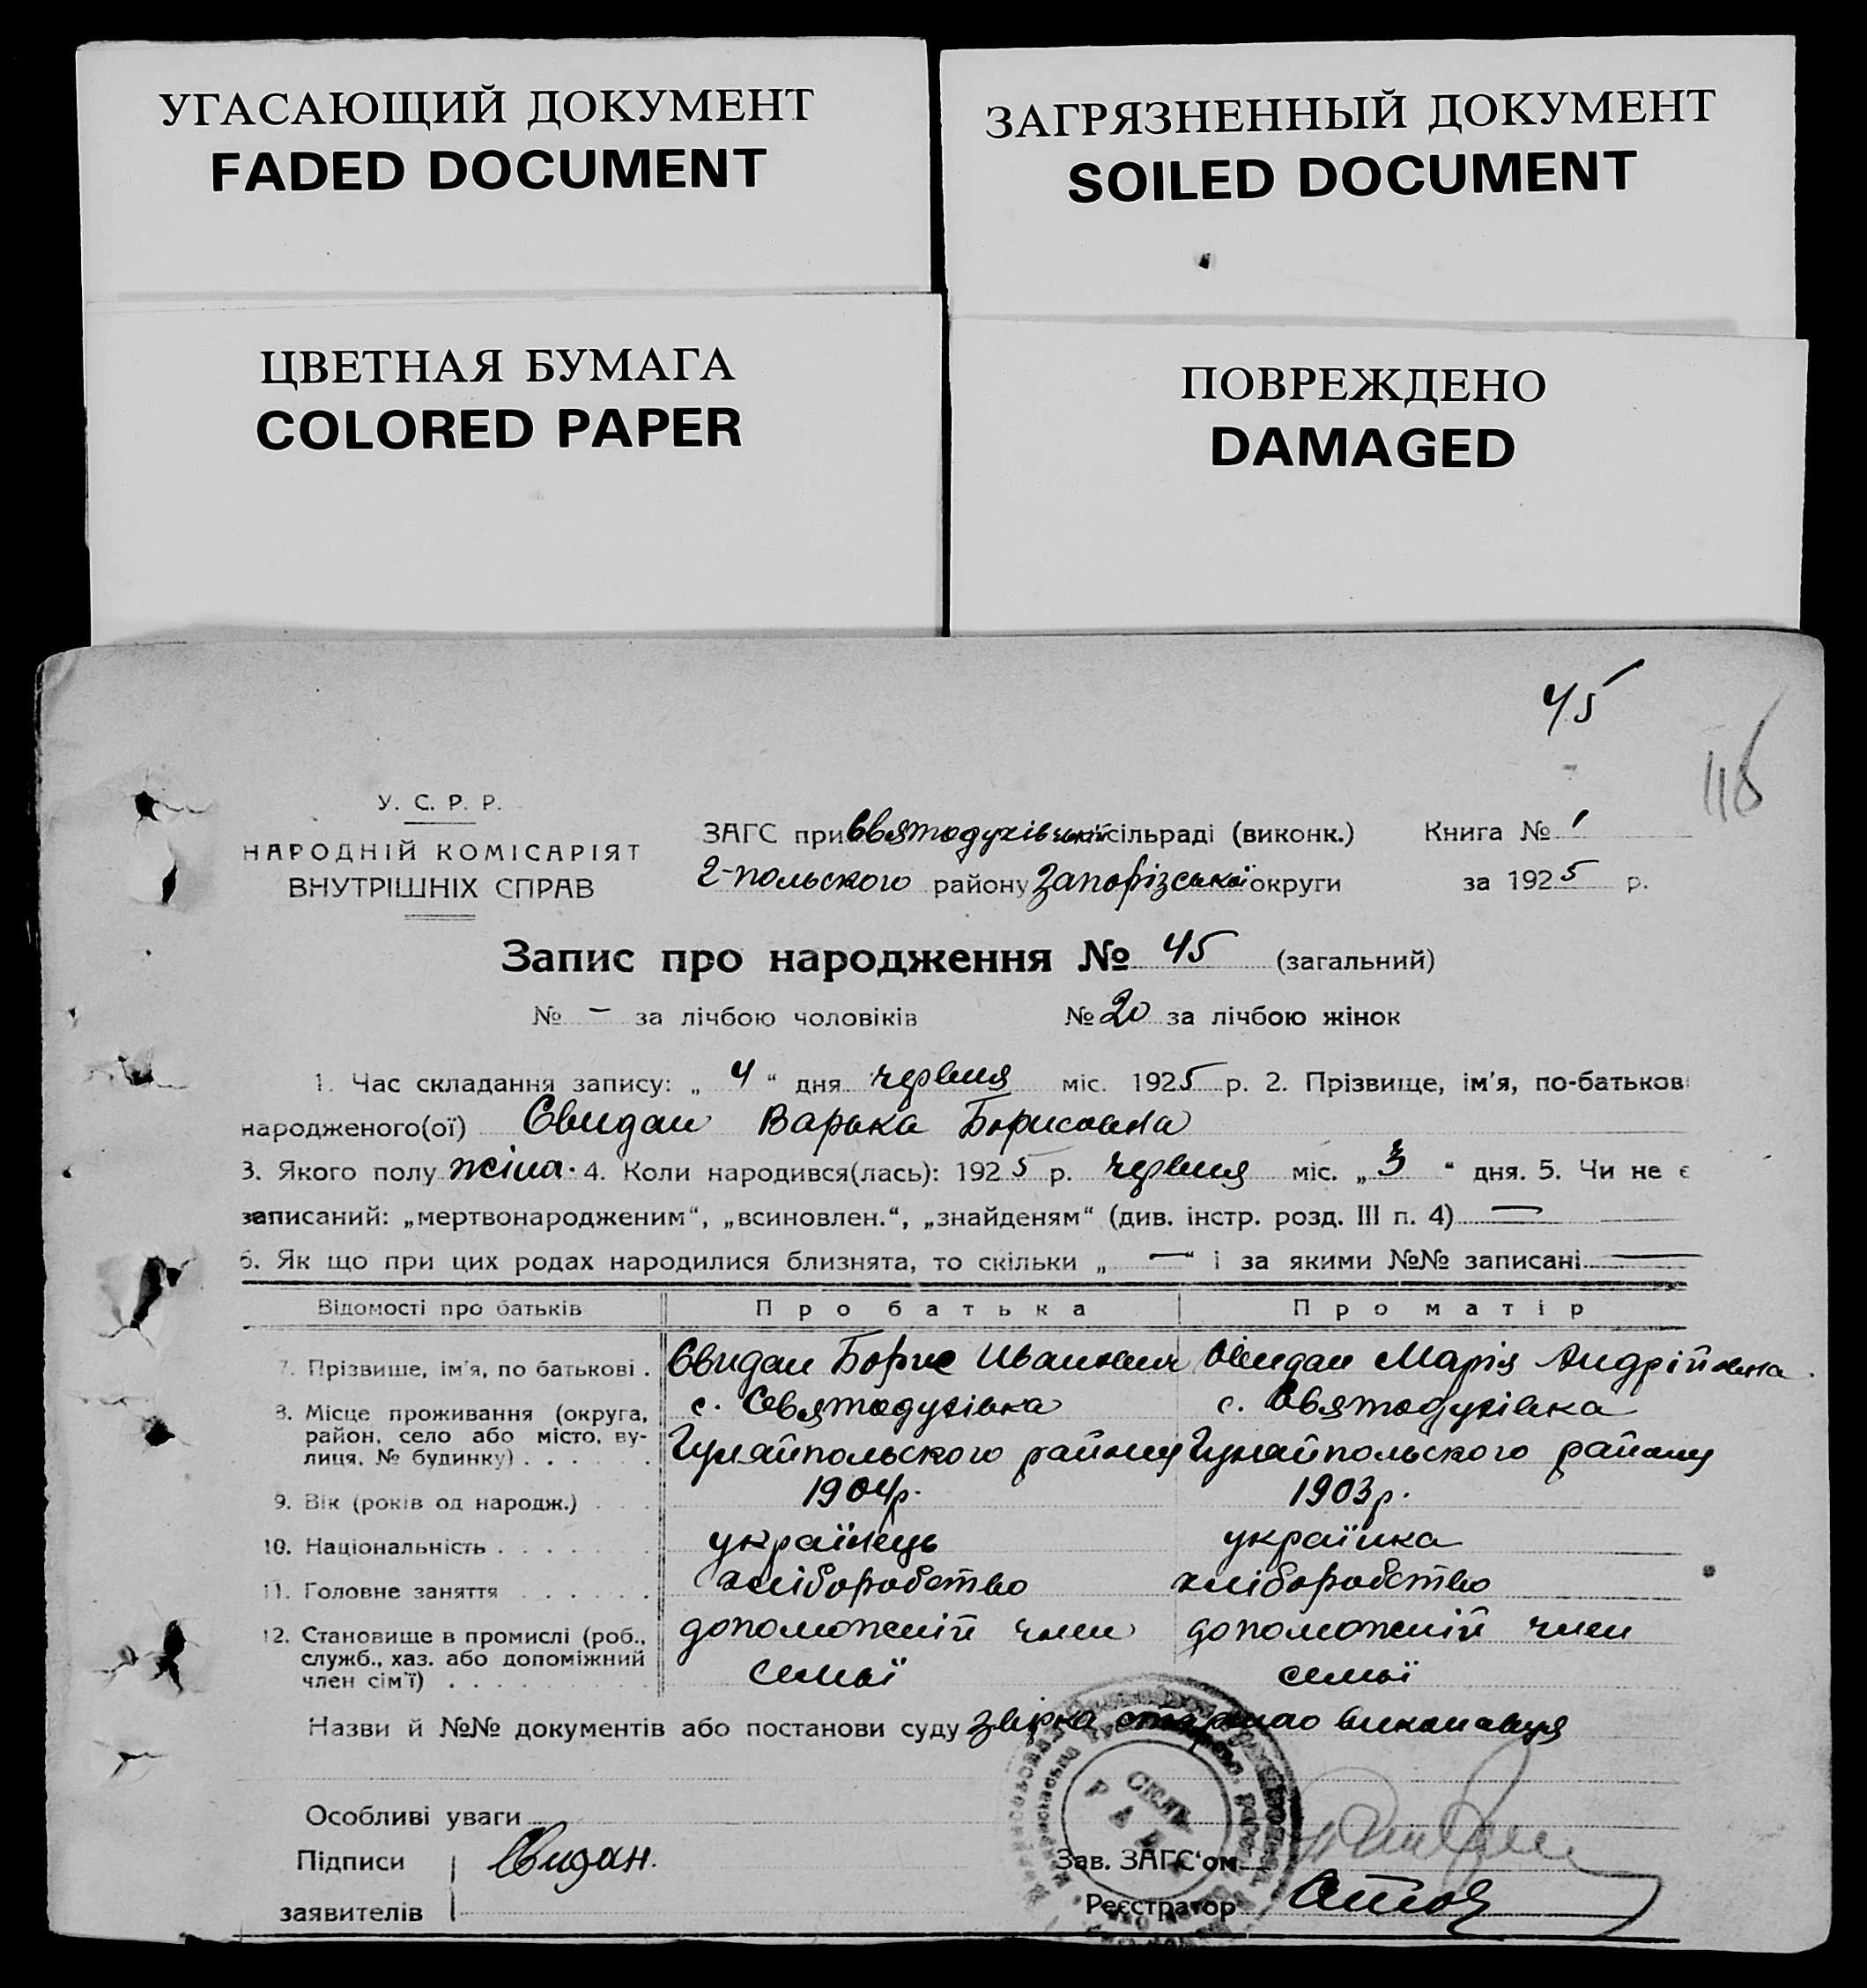 УГАСАЮЩИЙ ДОКУМЕНТ
FADED DOCUMENT
ЗАГРЯЗНЕННЫЙ ДОКУМЕНТ
SOILED DOCUMENT
ЦВЕТНАЯ БУМАГА
COLORED PAPER
ПОВРЕЖДЕНО
DAMAGED
45
У. С. Р. Р.
НАРОДНІЙ КОМІСАРІЯТ
ВНУТРІШНІХ СПРАВ
ЗАГС при Святодухівській сільраді (виконк.) Книга № 1
Г-польского району Запорізської округи за 1925 р.
Запис про народження № 45 (загальний)
№ – за лічбою чоловіків № 20 за лічбою жінок
1. Час складання запису: „ 4 “ дня червня міс. 1925 р. 2. Прізвище, ім'я, по-батькові
народженого(ої) Свидан Варька Борисовна
3. Якого полу жіна. 4. Коли народився(лась): 1925 р. червня міс. „ 3 “ дня. 5. Чи не є
записаний: „мертвонародженим“, „всиновлен.“, „знайденям“ (див. інстр. розд. III п. 4) —
6. Як що при цих родах народилися близнята, то скільки „ — “ і за якими №№ записані —
Відомості про батьків Про батька Про матір
7. Прізвише, ім'я, по батькові . Свидан Борис Иванович Свидан Марія Андрійовна.
8. Місце проживання (округа, с. Святодухівка с. Святодухівка
район, село або місто, ву-
лиця, № будинку) . . . . . . Гуляйпольского району Гуляйпольского району
9. Вік (років од народж.) . . . 1904р. 1903р.
10. Національність . . . . . . . українець українка
11. Головне заняття . . . . . . хліборобство хліборобство
12. Становище в промислі (роб., допоможній член допоможній член
служб., хаз. або допоміжний
член сім'ї) . . . . . . . . . семьї семьї
Назви й №№ документів або постанови суду звірка виконавця
Особливі уваги
Підписи Свидан.
Зав. ЗАГС'ом
заявителів
Реєстратор